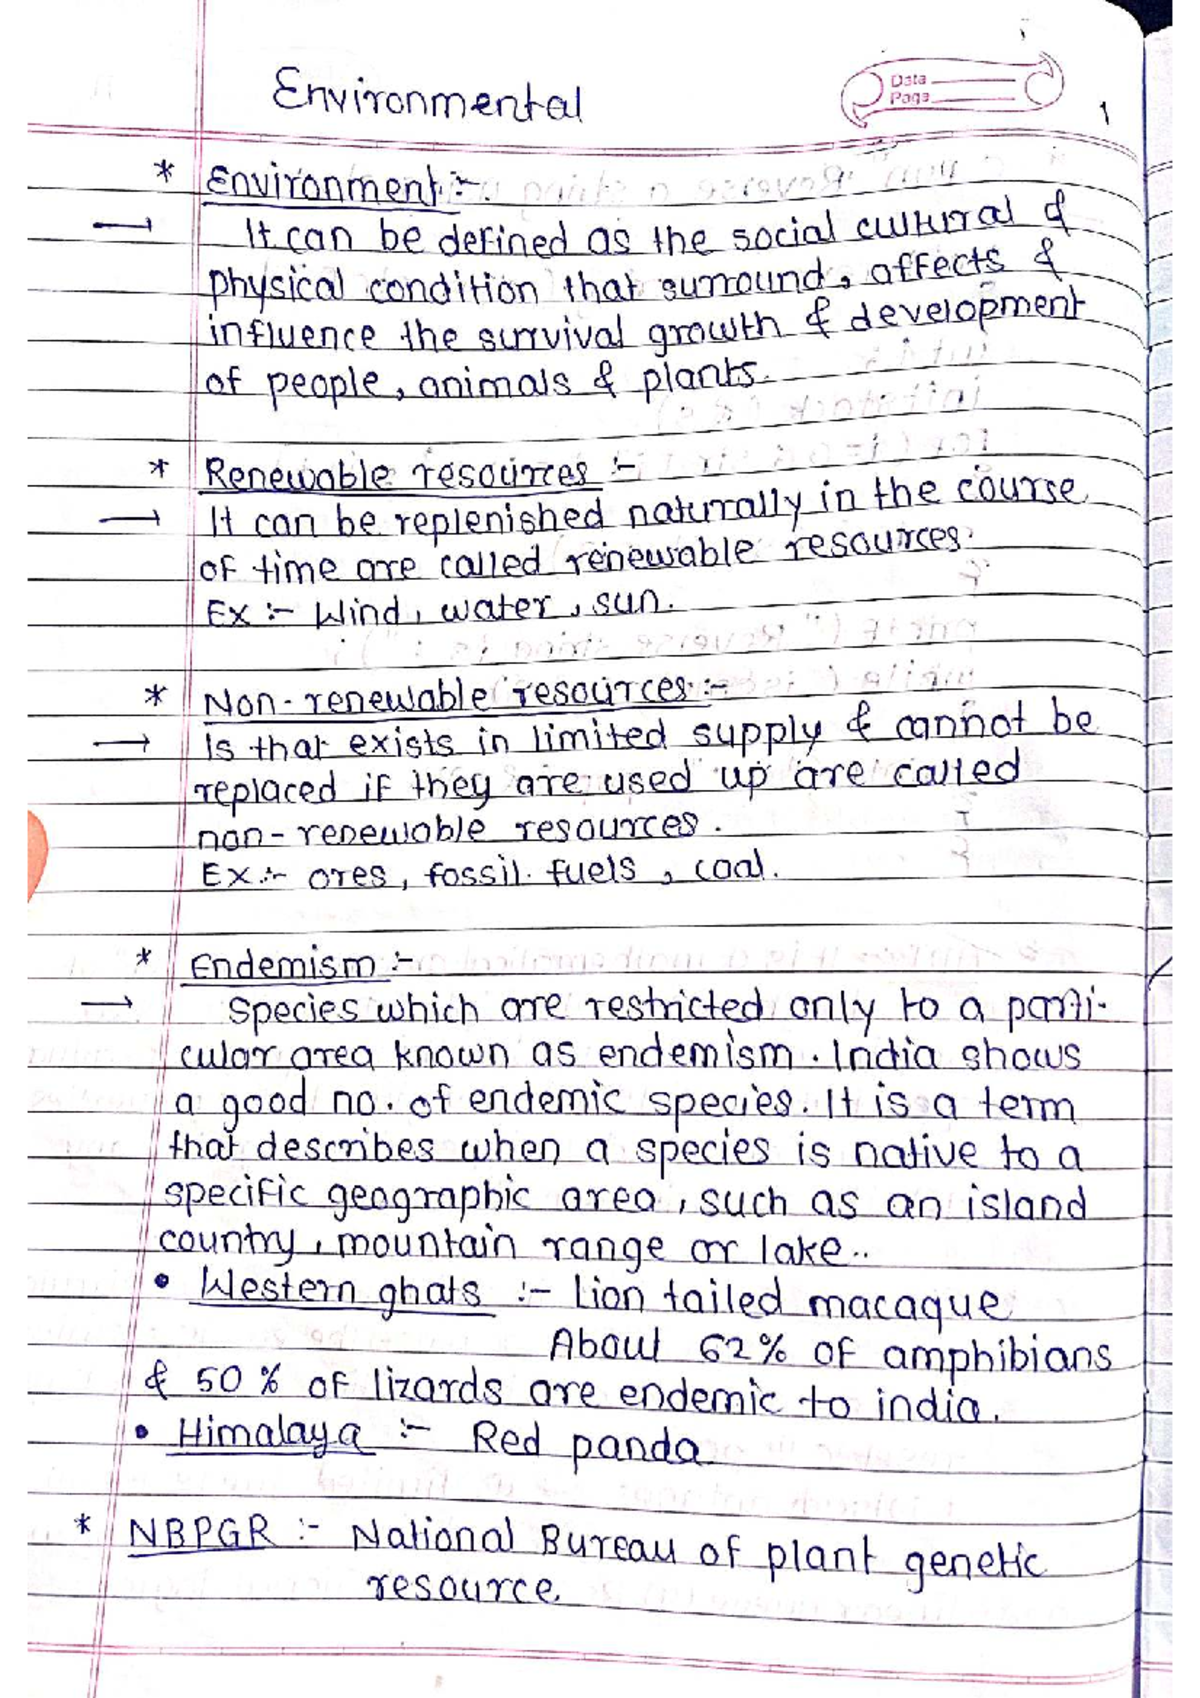 Environmental
Data
Page
1
* Environment :-
→ It can be defined as the social cultural &
physical condition that surround, affects &
influence the survival growth & development
of people, animals & plants.
* Renewable resources :-
→ It can be replenished naturally in the course
of time are called renewable resources.
Ex :- Wind, water, sun.
* Non-renewable resources :-
→ is that exists in limited supply & cannot be
replaced if they are used up are called
non-renewable resources.
Ex :- ores, fossil fuels, coal.
* Endemism :-
→ Species which are restricted only to a parti-
cular area known as endemism. India shows
a good no. of endemic species. It is a term
that describes when a species is native to a
specific geographic area, such as an island
country, mountain range or lake..
• Western ghats :- Lion tailed macaque
About 62% of amphibians
& 50% of lizards are endemic to india.
• Himalaya :- Red panda
* NBPGR :- National Bureau of plant genetic
resource.